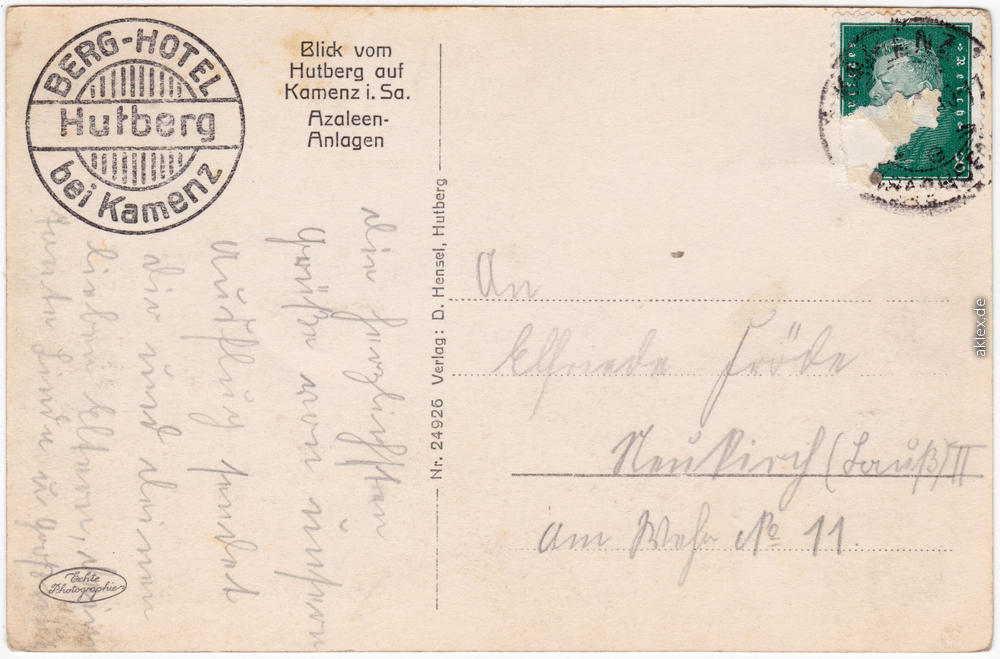 BERG-HOTEL
Hutberg
bei Kamenz
Blick vom
Hutberg auf
Kamenz i. Sa.
Azaleen-
Anlagen
Die herzlichsten
Grüße vom unsern
Ausflug sendet
dir und deinen
lieben Eltern,
Tante Linda u.
Echte
Photographie
Nr. 24926 Verlag: D. Hensel, Hutberg
An
Elfriede Fröde
Neukirch (Lauß) II
Am Wehr No 11.
Deutsches Reich
8
aklex.de